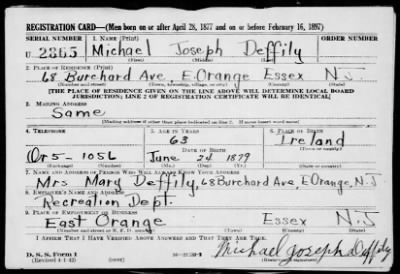 REGISTRATION CARD—(Men born on or after April 28, 1877 and on or before February 16, 1897)
SERIAL NUMBER 1. NAME (Print) ORDER NUMBER
U 2365 Michael Joseph Deffily
(First) (Middle) (Last)
2. PLACE OF RESIDENCE (Print)
68 Burchard Ave E. Orange Essex N.J.
(Number and street) (Town, township, village, or city) (County) (State)
[THE PLACE OF RESIDENCE GIVEN ON THE LINE ABOVE WILL DETERMINE LOCAL BOARD
JURISDICTION; LINE 2 OF REGISTRATION CERTIFICATE WILL BE IDENTICAL]
3. MAILING ADDRESS
Same
[Mailing address if other than place indicated on line 2. If same insert word same]
4. TELEPHONE 5. AGE IN YEARS 6. PLACE OF BIRTH
63 Ireland
Or 5-1056 June 24 1879
7. NAME AND ADDRESS OF PERSON WHO WILL ALWAYS KNOW YOUR ADDRESS
Mrs Mary Deffily 68 Burchard Ave, E Orange, N.J
8. EMPLOYER'S NAME AND ADDRESS
Recreation Dept.
9. PLACE OF EMPLOYMENT OR BUSINESS
East Orange Essex N.J
I AFFIRM THAT I HAVE VERIFIED ABOVE ANSWERS AND THAT THEY ARE TRUE.
D. S. S. Form 1
(Revised 4-1-42)
Michael Joseph Deffily